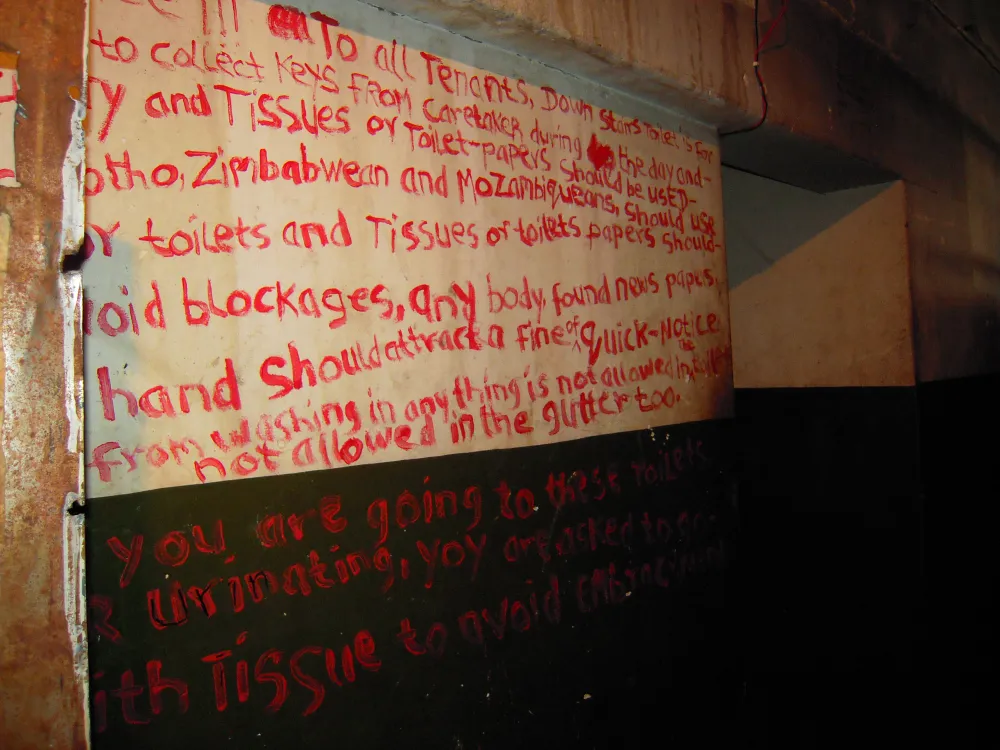 !!! To all Tenants, Down stairs Toilet is for
to collect Keys From Caretaker during the day and-
y and Tissues or Toilet-papers Should be usED-
otho, Zimbabwean and Mozambiqueans, should use
or toilets and Tissues or toilets papers should-
oid blockages, any body, found news papers,
hand should attract a fine of, Quick-Notice
from washing in any thing is not allowed in, the
not allowed in the glitter too.
you are going to these Toilet
urinating, yoy are asked to go-
ith Tissue to avoid